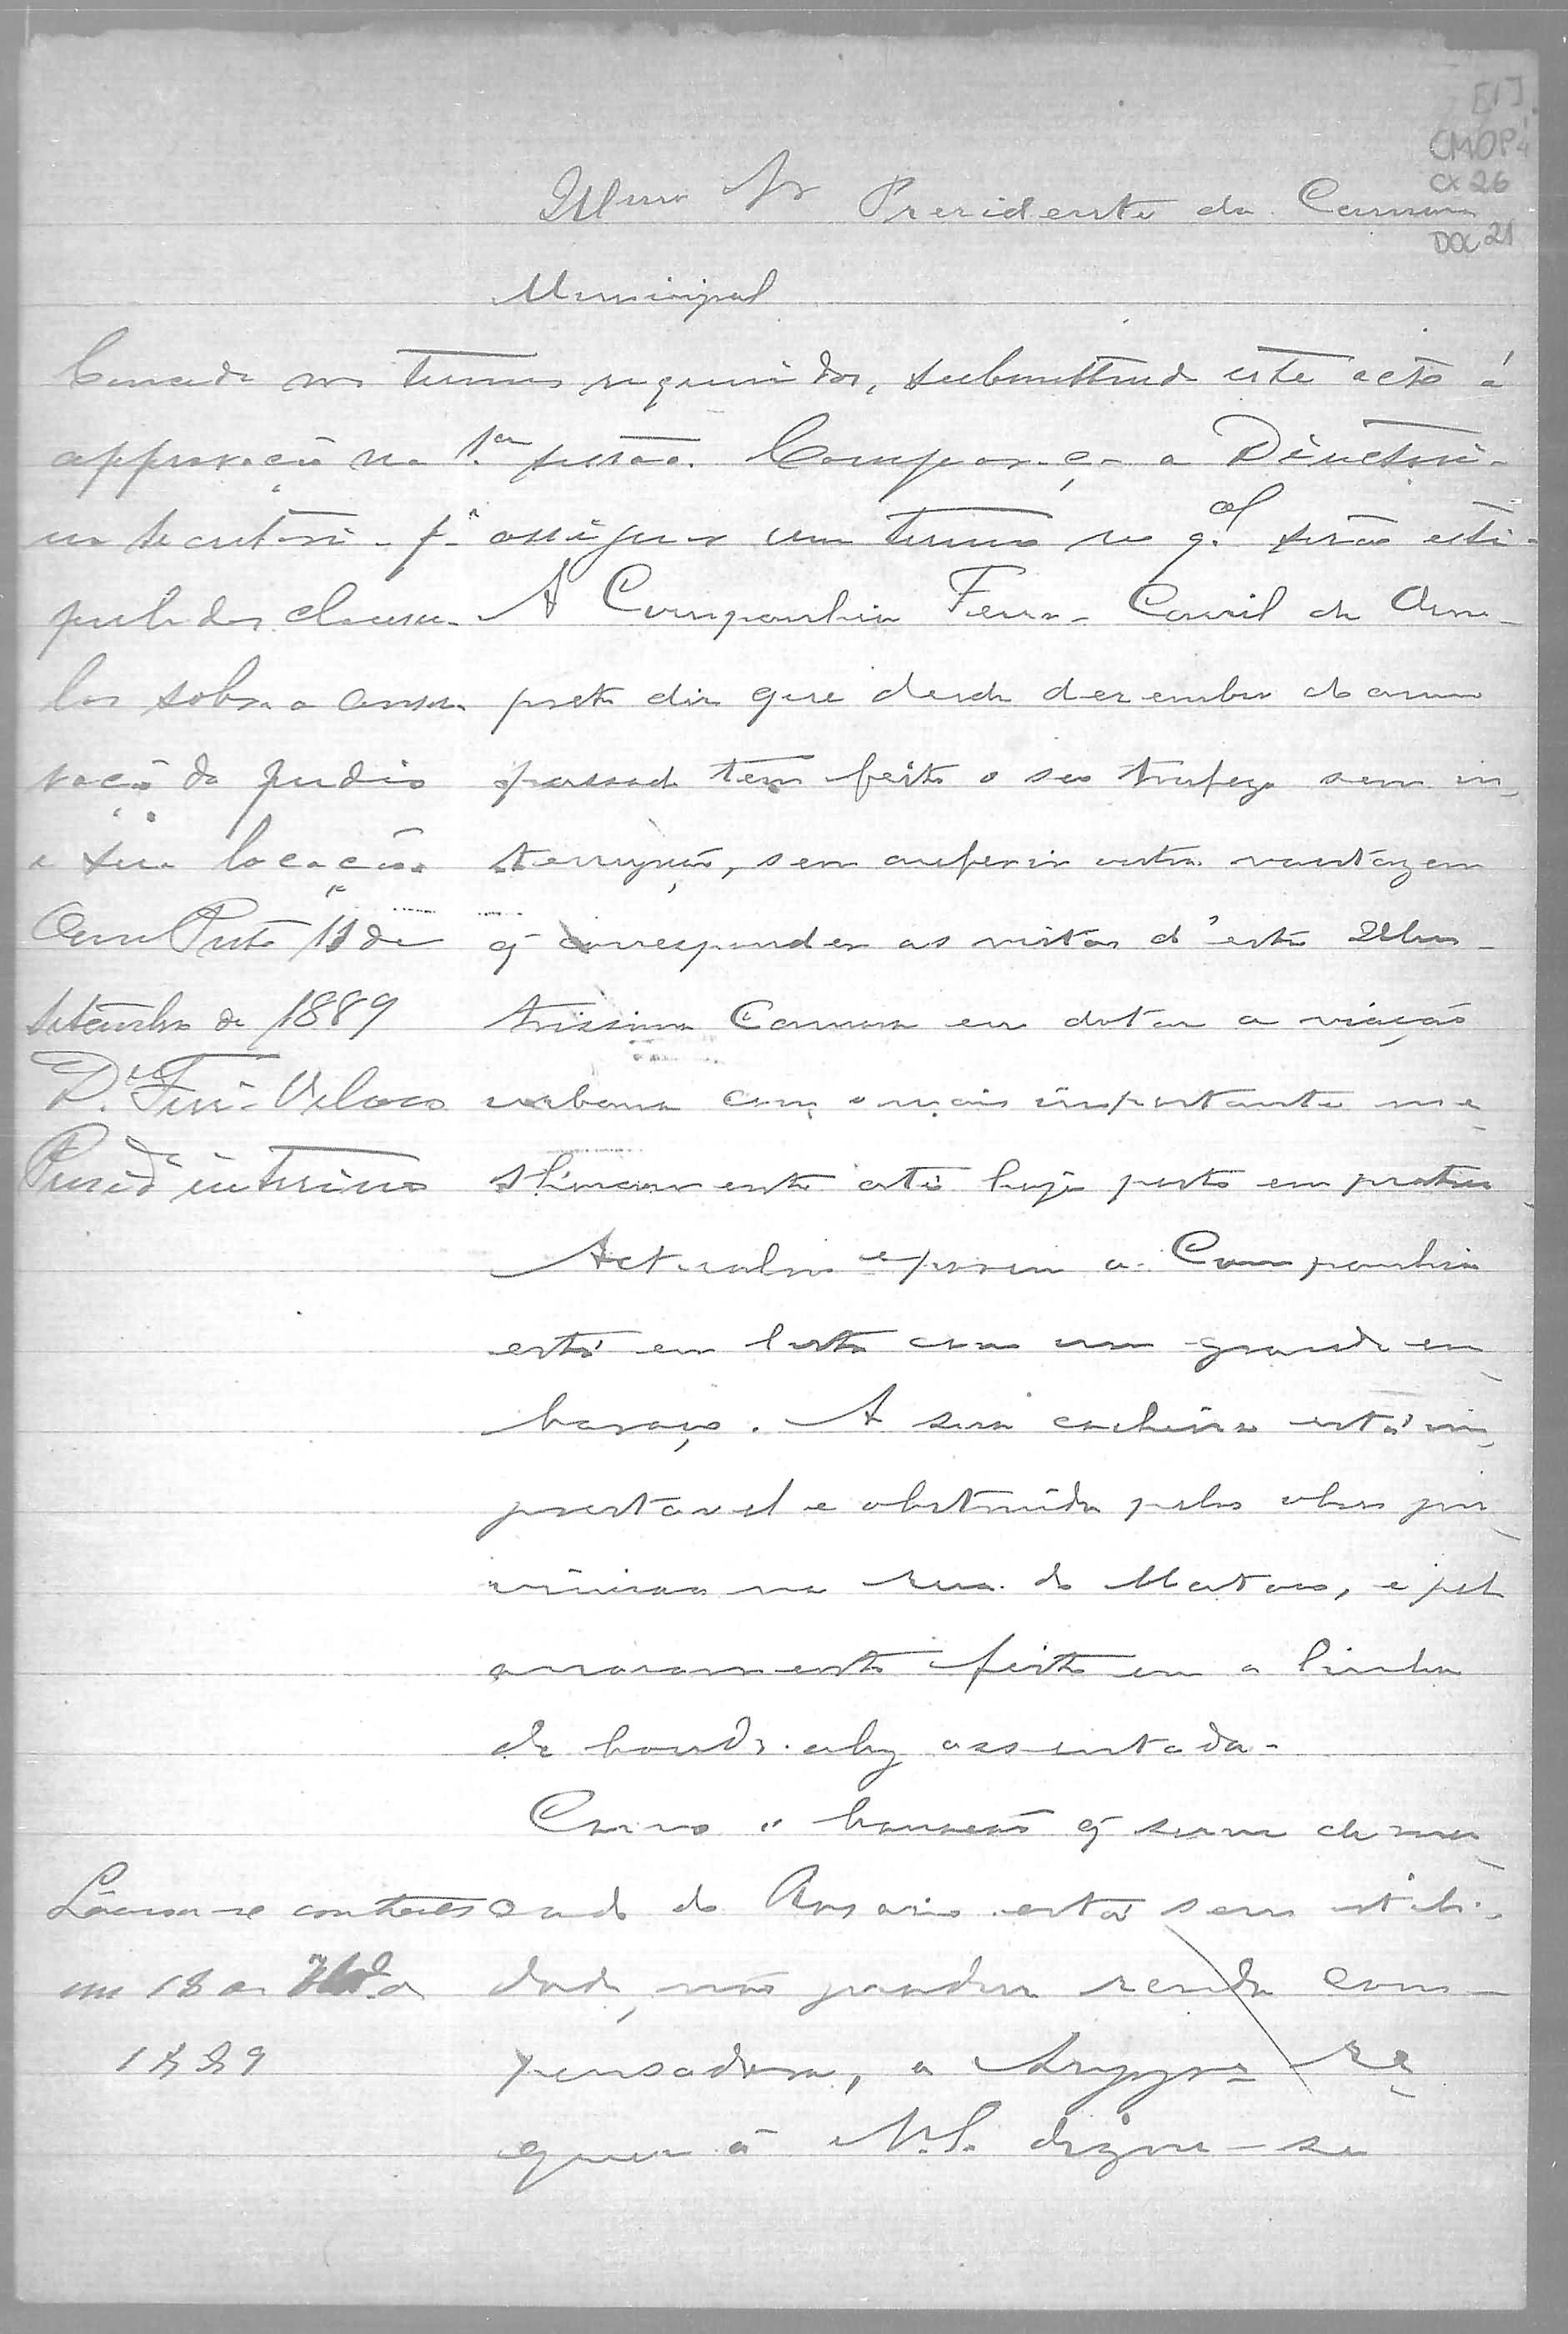 [1]
CMOP
CX 26
DOC 21
Illmo Sr Presidente da Camara
Municipal
Concedo nos termos requeridos, submettendo este acto á
approvação na 1.ª sessão. Compareça a Directori-
a
na secretaria pª assignar um termo no q.al serão esti-
puladas clausu-
las sobre a conser-
vação do predio
e sua locação.
Ouro Preto 11 de
Setembro de 1889
D.or Velloso
Presid.e interino
A Companhia Ferro-Carril de Ouro-
preto diz que desde dezembro do anno
passado tem feito o seu trafego sem in-
terrupção, sem auferir outra vantagem
q̃ corresponder as vistas d'esta Illus-
trissima Camara em dotar a viação
urbana com o mais importante me-
lhoramento até hoje posto em pratica
Actualm.e porem a Companhia
está em luta com um grande em-
baraço. A sua cocheira está im-
prestavel e obstruida pelas obras
na rua do Mattoso, e pelo
feito em a linha
de bonds ahy assentada.
Como o barracão q̃ serve de mer-
cado do Rosario está sem utili-
dade, não produz renda com-
pensadora, a Suppe re-
quer á V.S. digne-se
Lavrou-se contracto
em 18 de
1889